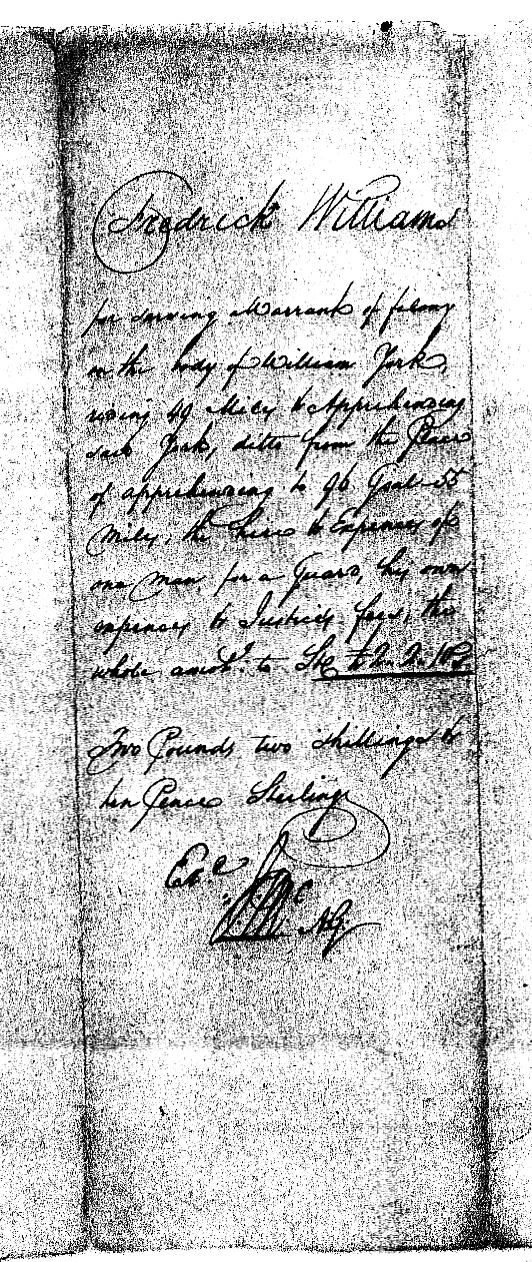 Fredrick Williams
for serving Warrant of felony
on the body of William York,
riding 49 Miles to Apprehending
said York, ditto from the Place
of apprehending to 96 Goal 55
Miles, the hire & Expences of
one Man for a Guard, his own
expences & Justices fees, the
whole amot. to Stg £2.2.10
Two Pounds two shillings &
ten Pence Sterling
Exd.
AG